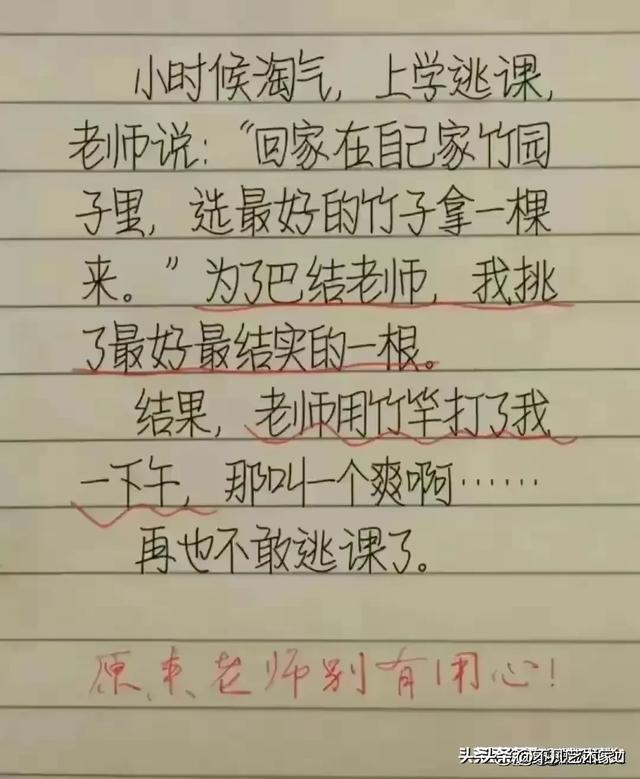 小时候淘气，上学逃课，
老师说：“回家在自己家竹园
子里，选最好的竹子拿一棵
来。”为了巴结老师，我挑
了最好最结实的一根。
结果，老师用竹竿打了我
一下午，那叫一个爽啊……
再也不敢逃课了。
原来老师别有用心！
头条